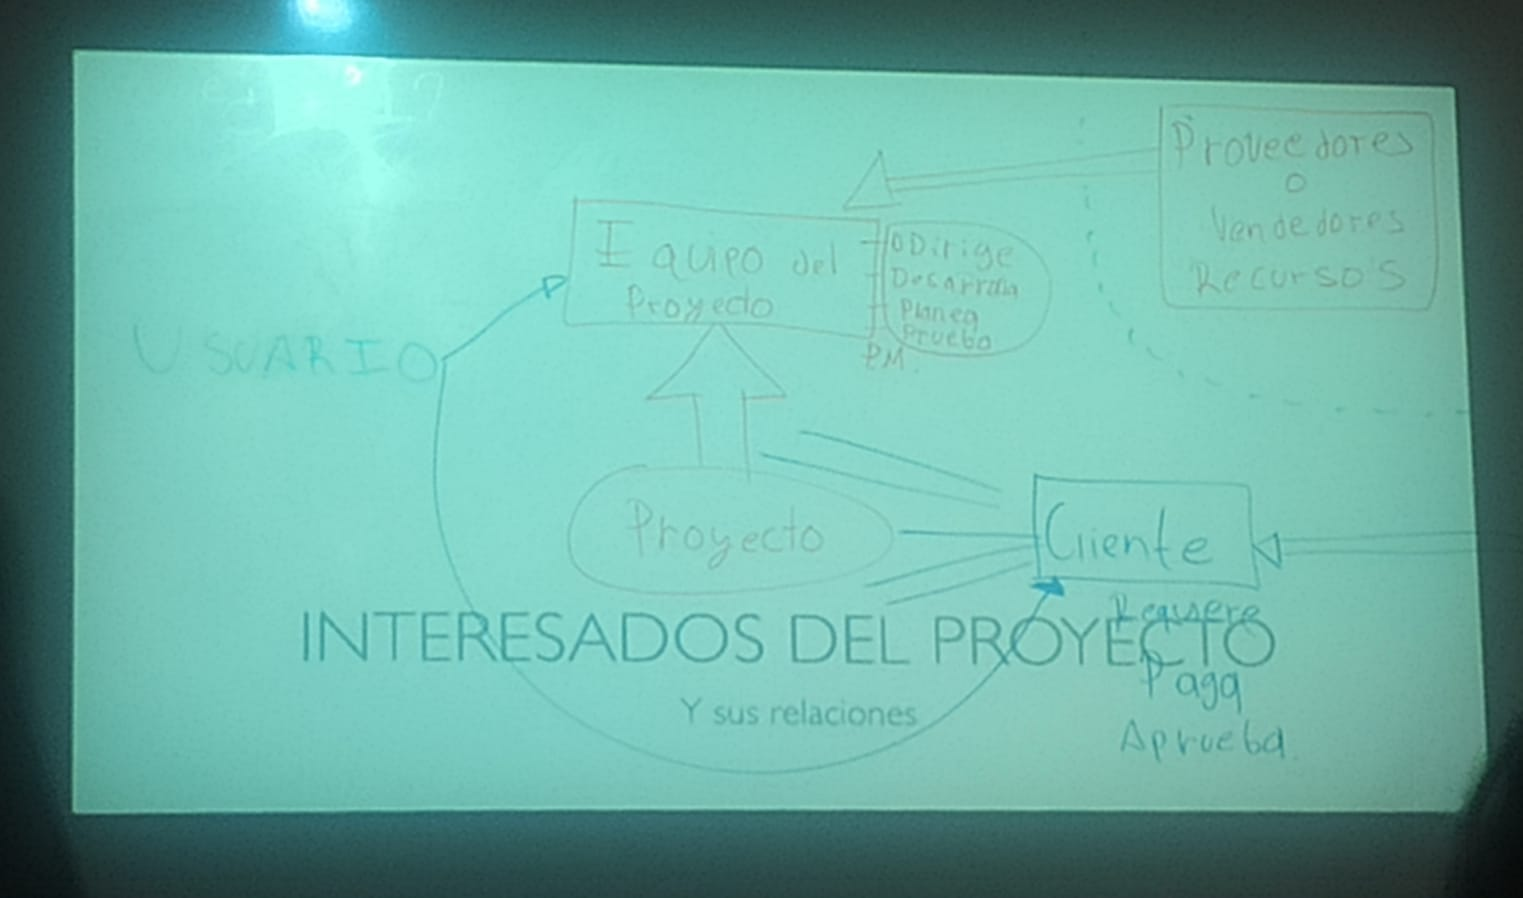 Proveedores
o
Vendedores
Recursos
Equipo del
Proyecto
Dirige
Desarrolla
Planea
Prueba
PM.
USUARIO
Proyecto
Cliente
Requiere
INTERESADOS DEL PROYECTO
Paga
Y sus relaciones
Aprueba